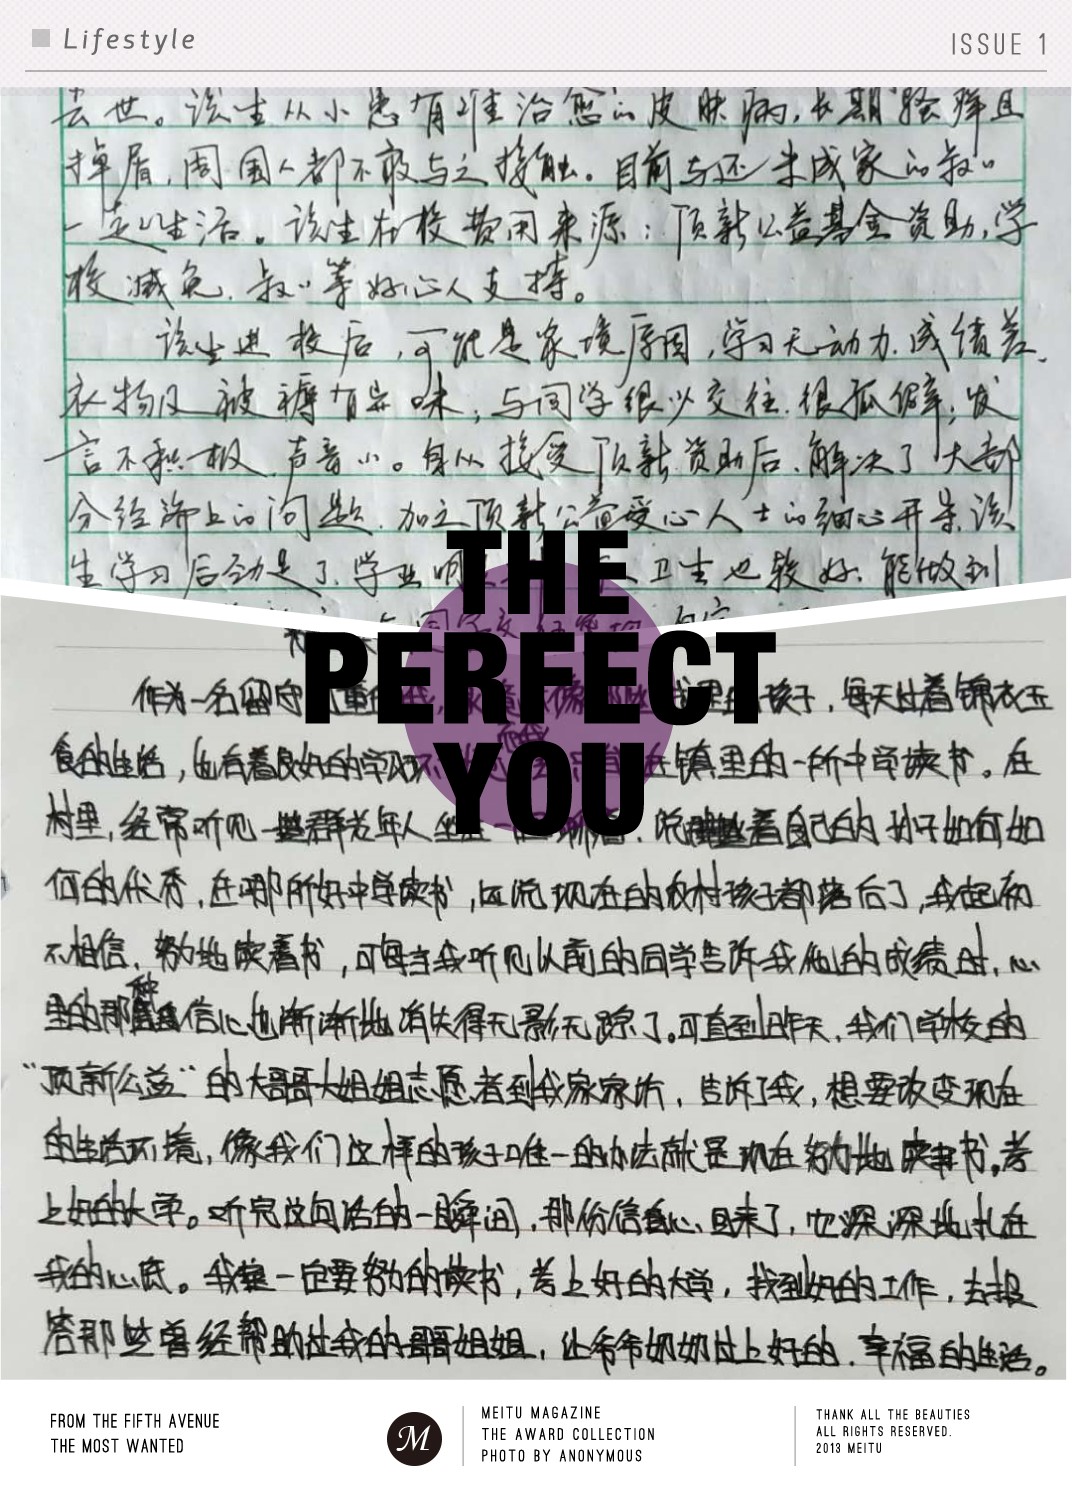 Lifestyle
ISSUE 1
去世。该生从小患有难治愈的皮肤病,长期骚痒且
掉屑,周围人都不敢与之接触。目前与还未成家的叔叔
一起生活。该生在校费用来源:顶新公益基金资助,学
校减免,叔叔等好心人支持。
该生进校后,可能是家境原因,学习无动力,成绩差,
衣物及被褥有异味,与同学很少交往,很孤僻,发
言不积极,声音小。自从接受顶新资助后,解决了大部
分经济上的问题,加之顶新公益爱心人士的细心开导,该
生学习后劲足了,学业明 卫生也较好,能做到
THE
PERFECT
YOU
作为一名留守儿童的我, 孩子,每天过着锦衣玉
食的生活,也有着良好的学习环 在镇里的一所中学读书。在
村里,经常听见一些群老年人坐在一 说 着自己的孙子如何如
何的优秀,在哪所好中学读书,还说现在的农村孩子都落后了,我起初
不相信,努力地读着书,可每当我听见以前的同学告诉我他的成绩时,心
里的那种信心也渐渐地消失得无影无踪了。可直到昨天,我们学校的
“顶新公益”的大哥哥大姐姐志愿者到我家家访,告诉了我,想要改变现在
的生活环境,像我们这样的孩子唯一的办法就是现在努力地读书。考
上好的大学。听完这句话的一瞬间,那份信心回来了,也深深地扎在
我的心底。我一定要努力的读书,考上好的大学,找到好的工作,去报
答那些曾经帮助过我的哥哥姐姐,让爷爷奶奶过上好的、幸福的生活。
FROM THE FIFTH AVENUE
THE MOST WANTED
M
MEITU MAGAZINE
THE AWARD COLLECTION
PHOTO BY ANONYMOUS
THANK ALL THE BEAUTIES
ALL RIGHTS RESERVED.
2013 MEITU